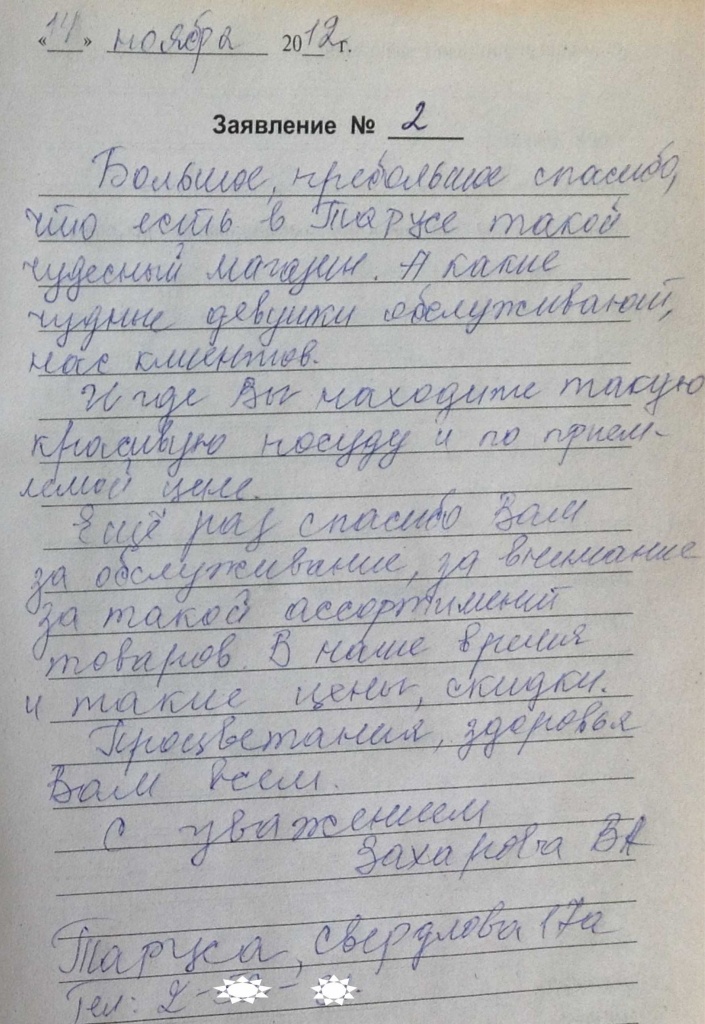 «14» ноября 2012г.
Заявление № 2
Большое, пребольшое спасибо,
что есть в Тарусе такой
чудесный магазин. А какие
чудные девушки обслуживают,
нас клиентов.
И где Вы находите такую
красивую посуду и по прием-
лемой цене.
Ещё раз спасибо Вам
за обслуживание, за внимание
за такой ассортимент
товаров. В наше время
и такие цены, скидки.
Процветания, здоровья
Вам всем.
С уважением
Захарова ВА
Таруса, Свердлова 17а
Тел: 2-